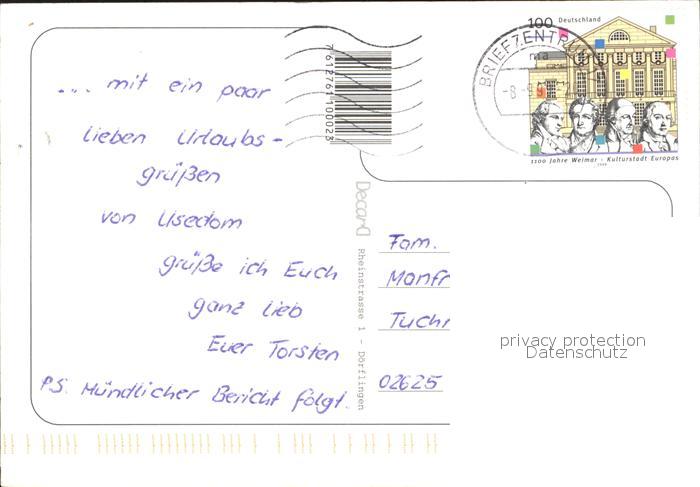 ... mit ein paar
lieben Urlaubs-
grüßen
von Usedom
grüße ich Euch
ganz lieb
Euer Torsten
P.S. Mündlicher Bericht folgt.
7612761100023
DecarD
Rheinstrasse 1 - Dörflingen
100 Deutschland
BRIEFZENTRU
1100 Jahre Weimar · Kulturstadt Europas
1999
Fam.
Manfr
Tuchr
02625
privacy protection
Datenschutz